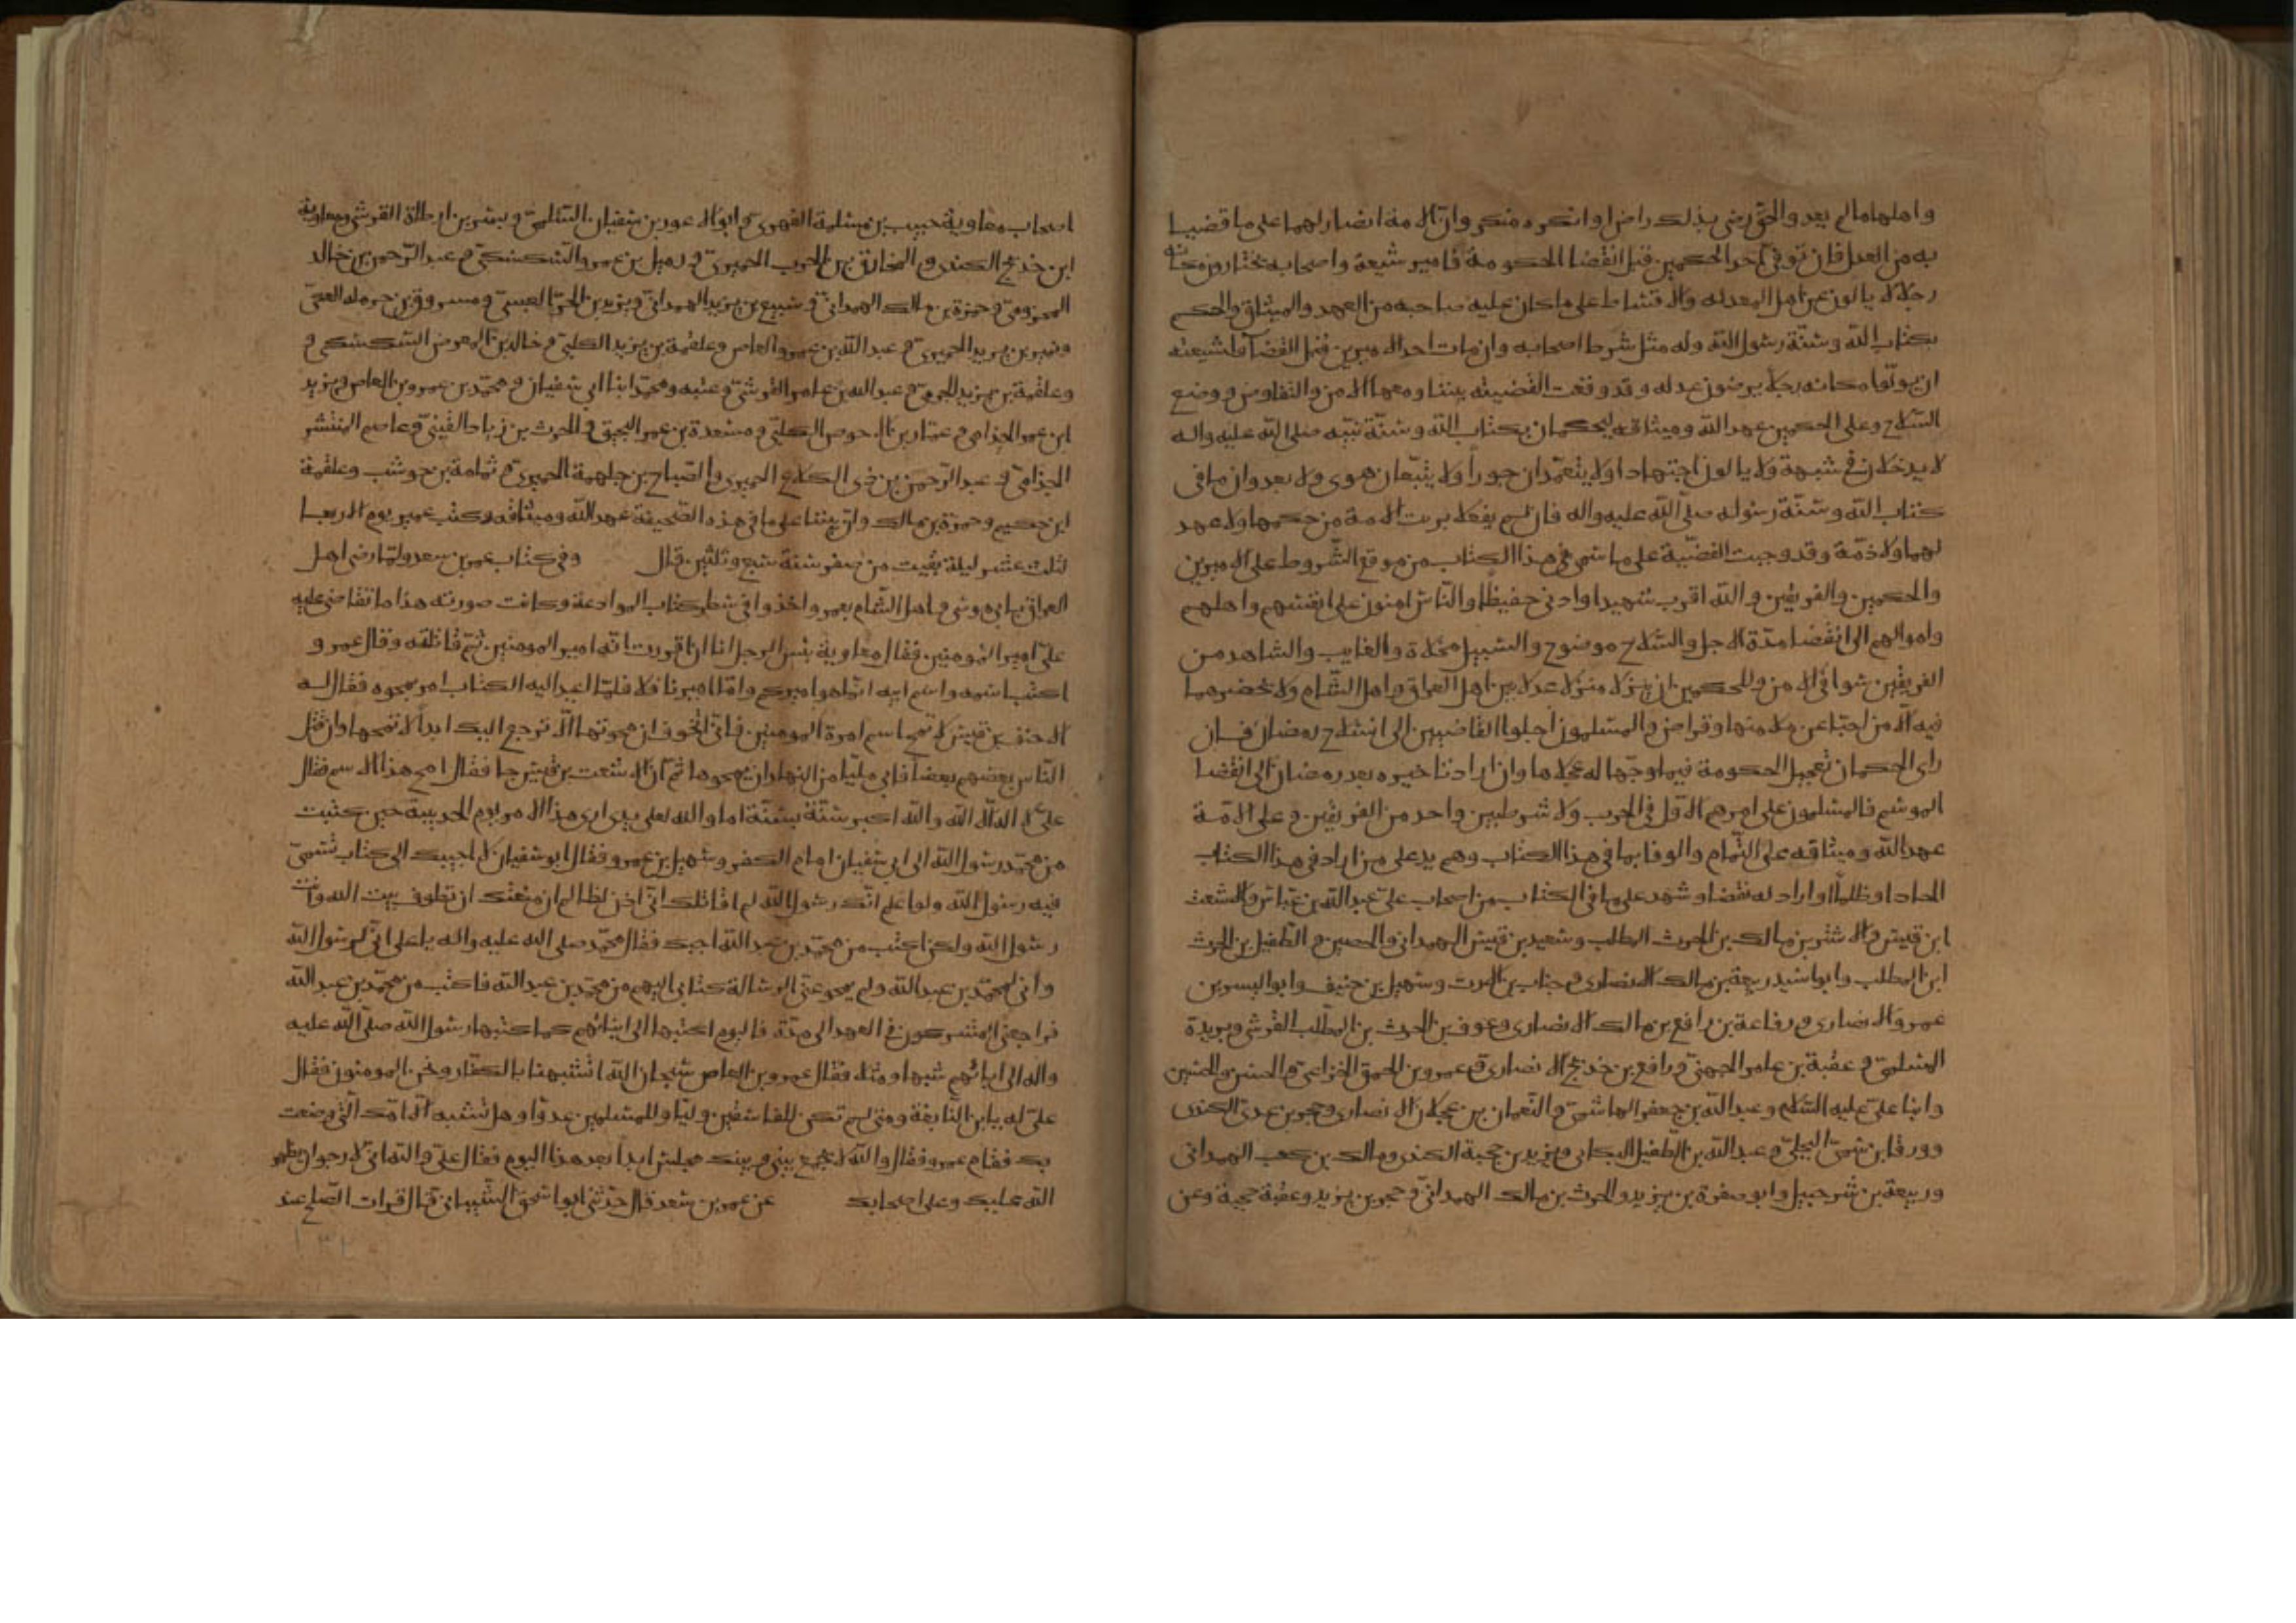 واهلهما ما لم يعدوا الحق رضى بذلك راض او انكره منكر وان الامة انصار لهما على ما قضيا
به من العدل فان توفى احد الحكمين قبل انقضا الحكومة فامير شيعة واصحابه يختارون مكانه
رجلا لا يالون عن اهل المعدله والاقتساط على ما كان عليه صاحبه من العهد والميثاق والحكم
بكتاب الله وسنة رسول الله وله مثل شرط اصحابه وان مات احد الاميرين قبل القضا فلشيعته
ان يولوا مكانه رجلا يرضون عدله وقد وقعت القضيته بيننا ومعها الامن والتفاوض ووضع
السلاح وعلى الحكمين عهد الله وميثاقه ليحكمان بكتاب الله وسنة نبيه صلى الله عليه واله
لا يدخلان في شبهة ولا يالون اجتهادا ولا يتعمدان جورا ولا يتبعان هوى ولا يعدوان ما فى
كتاب الله وسنة رسوله صلى الله عليه واله فان لم يفعلا بريت الامة من حكمهما ولا عهد
لهما ولا ذمة وقد وجبت القضية على ما سمى في هذا الكتاب من موقع الشروط على الاميرين
والحكمين والفريقين والله اقرب شهيدا وادنى حفيظا والناس امنون على انفسهم واهلهم
واموالهم الى انقضا مدة الاجل والسلاح موضوع والسبيل مخلاة والغايب والشاهد من
الفريقين سوا في الامن وللحكمين ان ينزلا منزلا عدلا بين اهل العراق واهل الشام ولا يحضرهما
فيه الا من احبا عن ملا منهما وتراض والمسلمون اجلوا القاضيين الى انسلاخ رمضان فان
راى الحكمان تعجيل الحكومة فيما وجها له عجلاها وان ارادا تاخيره بعد رمضان الى انقضا
الموسم فالمسلمون على امرهم الاول في الحرب ولا شرط بين واحد من الفريقين وعلى الامة
عهد الله وميثاقه على التمام والوفا بما في هذا الكتاب وهم يد على من اراد في هذا الكتاب
الحادا وظلما او اراد له نقضا وشهد على ما في الكتاب من اصحاب على عبد الله بن عباس والاشعث
ابن قيس والاشتر بن مالك بن الحرث المطلب وسعيد بن قيس الهمدانى والحصين والطفيل بن الحرث
ابن المطلب وابو اسيد ربيعة بن مالك الانصارى وخباب بن الارت وسهيل بن حنيف وابو اليسر بن
عمرو الانصارى ورفاعة بن رافع بن مالك الانصارى وعوف بن الحرث بن المطلب القرشى وبريدة
السلمى وعقبة بن عامر الجهنى ورافع بن خديج الانصارى وعمرو بن الحمق الخزاعى والحسن والحسين
وابنا على عليه السلام وعبد الله بن جعفر الهاشمى والنعمان بن عجلان الانصارى وحجر بن عدى الكندى
وورقا بن سمى البجلى وعبد الله بن الطفيل البكاى ويزيد بن حجبة الكندى ومالك بن كعب الهمدانى
وربيعة بن شرحبيل وابو صفرة بن يزيد والحرث بن مالك الهمدانى وحجر بن يزيد وعقبة حجية وعن
اصحاب معاوية حبيب بن مسلمة الفهرى وابو الاعور بن سفيان السلمى وبسر بن ارطاة القرشى ومعاوية
ابن خديج الكندى والمخارق بن الحرب الحميرى وزميل بن عمرو السكسكى وعبد الرحمن بن خالد
المخزومى وحمزة بن مالك الهمدانى وسبيع بن يزيد الهمدانى ويزيد بن الحر العبسى ومسروق بن حرمله العكى
ونمير بن يزيد الحميرى وعبد الله بن عمرو العاص وعلقمة بن يزيد الكلبى وخالد بن المعرض السكسكى و
وعلقمة بن يزيد الجرمى وعبد الله بن عامر القرشى وعتبه ومحمد ابنا ابى سفيان ومحمد بن عمرو بن العاص ويزيد
ابن عمر الجذامى وعمار بن الاحوص الكلبى ومسعدة بن عمر والحرث بن زياد القينى وعاصم المنتشر
الجزامى وعبد الرحمن بن ذى الكلاع الحميرى والصباح بن جلهمة الحميرى وثمامة بن حوشب وعلقمة
ابن حكيم وحمزة بن مالك وان بيننا على ما في هذه الصحيفة عهد الله وميثاقه وكتب عمير يوم الاربعا
لثلث عشر ليلة بقيت من صفر سنة سبع وثلثين قال وفي كتاب عمر بن سعد ولما رضى اهل
العراق بابى موسى واهل الشام بعمرو اخذوا في سطر كتاب الموادعة وكانت صورته هذا ما تقاضى عليه
على امير المومنين فقال معاوية بئس الرجل انا ان اقررت انه امير المومنين ثم قاتلته وقال عمرو
اكتب اسمه واسم ابيه انما هو اميركم واما اميرنا فلا فلما اعيد اليه الكتاب امر بمحوه فقال له
الاحنف بن قيس لا تمح اسم امرة المومنين فانى اتخوف ان محوتها الا ترجع اليك ابدا لا تمحها وان قتل
الناس بعضهم بعضا فابى مليا من النهار ان يمحوها ثم ان الاشعث بن قيس جا فقال امح هذا الاسم فقال
على لا اله الا الله والله اكبر سنة بسنة اما والله لعلى يدى ارى هذا الامر يوم الحديبية حين كتبت
من محمد رسول الله الى ابى سفيان امام الكفر وسهيل بن عمرو فقال ابو سفيان لا اجيبك الى كتاب تسمى
فيه رسول الله ولو اعلم انك رسول الله لم اقاتلك انى اذن لظالم ان منعتك ان تطوف بيت الله وانت
رسول الله ولكن اكتب من محمد بن عبد الله اجبك فقال محمد صلى الله عليه واله يا على انى لرسول الله
وانى لمحمد بن عبد الله ولم يمح عنى الرسالة كتابى اليهم من محمد بن عبد الله فاكتب من محمد بن عبد الله
فراجعنى المشركون في العهد الى مدة فاليوم اكتبها الى ابنائهم كما كتبها رسول الله صلى الله عليه
واله الى ابائهم شبها ومثلا فقال عمرو بن العاص سبحان الله اتشبهنا بالكفار ونحن المومنون فقال
على له يا بن النابغة ومتى لم تكن للفاسقين وليا وللمسلمين عدوا وهل تشبه الا امك التى وضعت
بك فقام عمرو فقال والله لا يجمع بينى وبينك مجلس ابدا بعد هذا اليوم فقال على والله انى لارجو ان يظهر
الله عليك وعلى اصحابك عن عمر بن سعد قال حدثنى ابو اسحق الشيبانى قال قرات الصلح عند